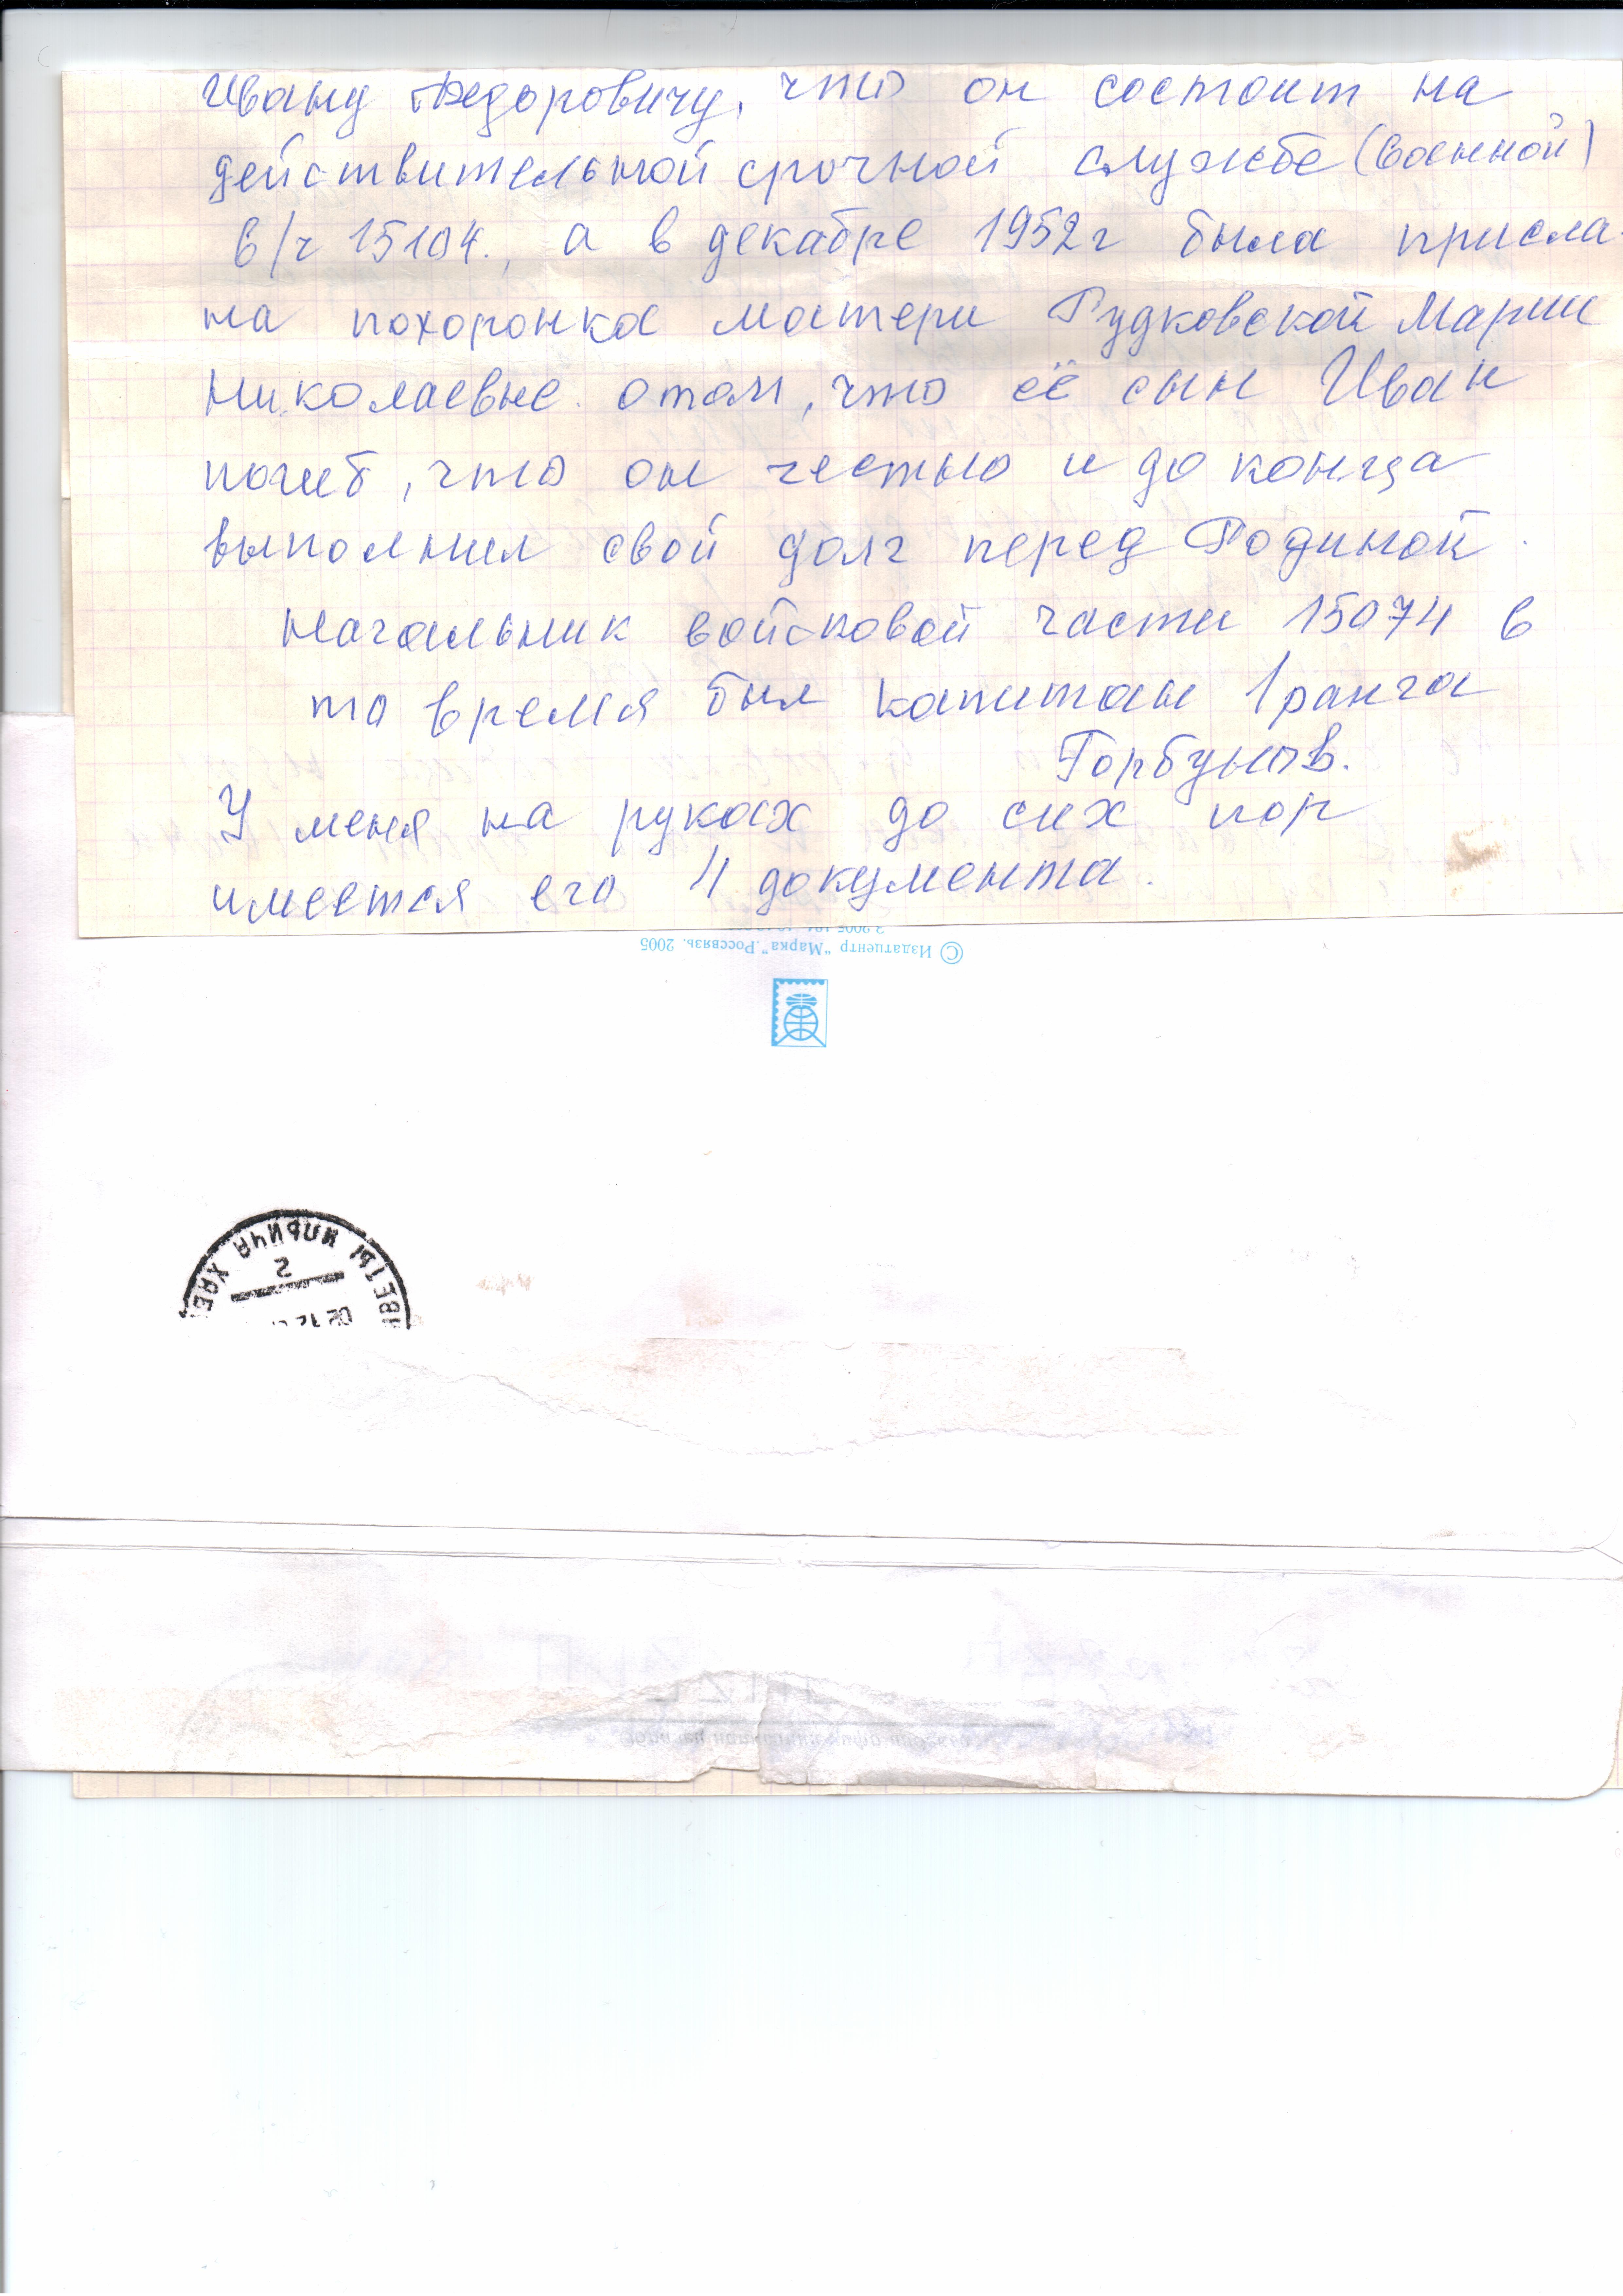 Ивану Федоровичу, что он состоит на
действительной срочной службе (военной)
в/ч 15104., а в декабре 1952г была присла-
на похоронка матери Рудковской Марии
Николаевне. о том, что её сын Иван
погиб, что он честно и до конца
выполнил свой долг перед Родиной.
Начальник войсковой части 15074 в
то время был капитан 1 ранга
Горбунов.
У меня на руках до сих пор
имеется его 4 документа.
© Издатцентр "Марка".Россвязь. 2005
ИЛЬИЧА
2
02 12